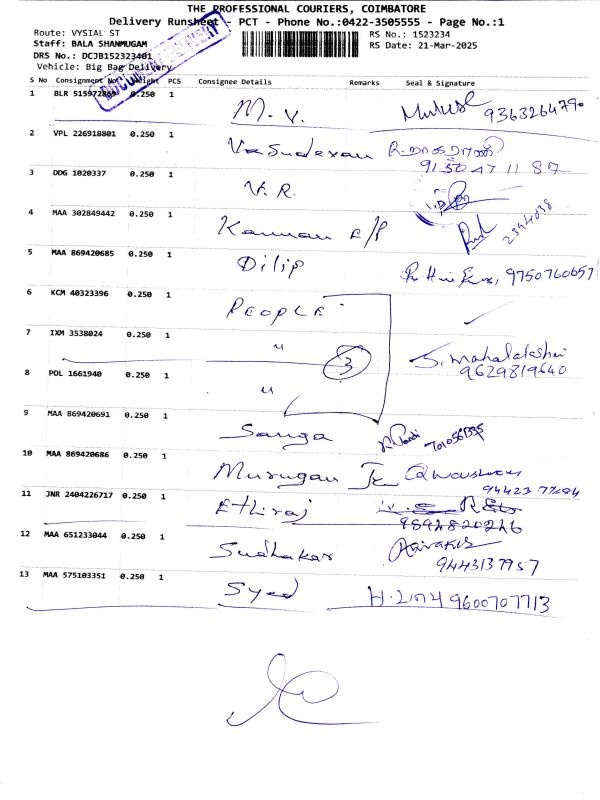 THE PROFESSIONAL COURIERS, COIMBATORE
Delivery Runsheet - PCT - Phone No.:0422-3505555 - Page No.:1
Route: VYSIAL ST
RS No.: 1523234
Staff: BALA SHANMUGAM
RS Date: 21-Mar-2025
DRS No.: DCJB152323401
Vehicle: Big Bag Delivery
S No Consignment No Weight PCS Consignee Details Remarks Seal & Signature
1 BLR 515972869 0.250 1 M. V. 9363264790
2 VPL 226918801 0.250 1 Vasudevan R.
9150471187
3 DDG 1020337 0.250 1 V. R.
4 MAA 302849442 0.250 1 Kannan E/P 2344038
5 MAA 869420685 0.250 1 Dilip 9750760657
6 KCM 40323396 0.250 1 PEOPLE
7 IXM 3538024 0.250 1 " 3 S. Mahalakshmi
9629819640
8 POL 1661940 0.250 1 "
9 MAA 869420691 0.250 1 Sanga
10 MAA 869420686 0.250 1 Murugan
11 JNR 2404226717 0.250 1 Ethiraj
12 MAA 651233044 0.250 1 Sudhakar
9443137957
13 MAA 575103351 0.250 1 Syed 9600707713